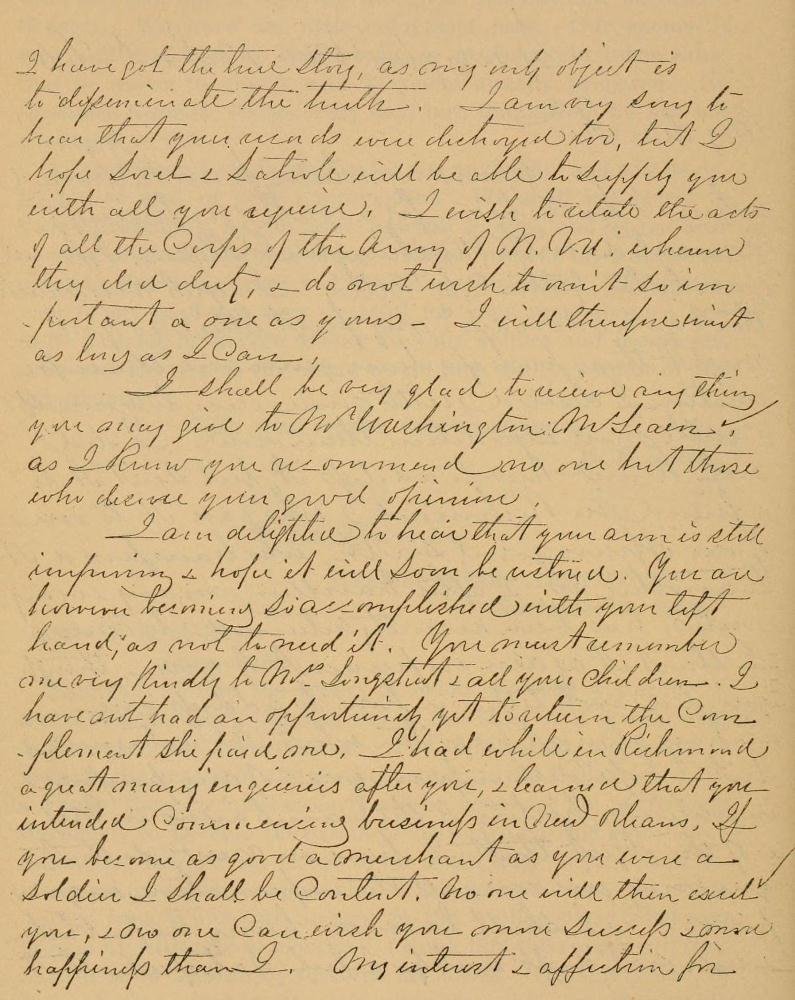 I have got the true story, as my only object is
to disseminate the truth. I am very sorry to
hear that your records were destroyed too, but I
hope Sorel & Latrole will be able to supply you
with all you require. I wish to relate the acts
of all the Corps of the Army of N. Va. wherein
they did duty, & do not wish to omit so im
-portant a one as yours - I will therefore wait
as long as I Can.
I shall be very glad to receive any thing
you may give to Mr Washington McLean,
as I Know you recommend no one but those
who deserve your good opinion.
I am delighted to hear that your arm is still
improving & hope it will soon be restored. You are
however becoming so accomplished with your left
hand, as not to need it. You must remember
me very Kindly to Mrs Longstreet & all your Children. I
have not had an opportunity yet to return the Com
-plement she paid me. I had while in Richmond
a great many enquiries after you, & learned that you
intended Commencing business in New Orleans. If
you become as good a merchant as you were a
soldier I shall be Content. No one will then excel
you, & no one Can wish you more success & more
happiness than I. My interest & affection for